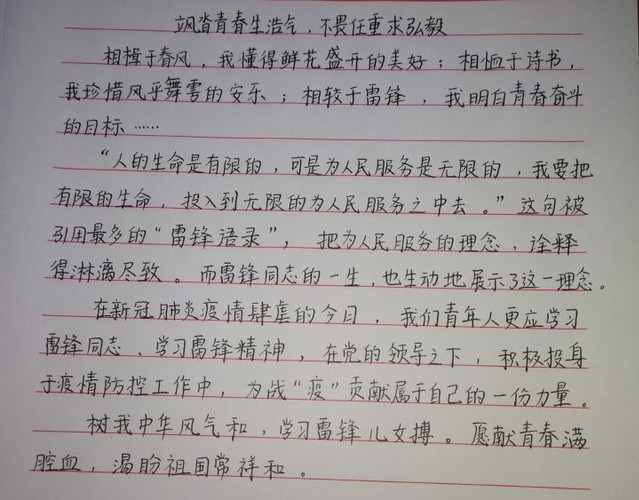 飒沓青春生浩气，不畏任重求弘毅
相楫于春风，我懂得鲜花盛开的美好；相恤于诗书，
我珍惜风乎舞雩的安乐；相较于雷锋，我明白青春奋斗
的目标……
“人的生命是有限的，可是为人民服务是无限的，我要把
有限的生命，投入到无限的为人民服务之中去。”这句被
引用最多的“雷锋语录”，把为人民服务的理念，诠释
得淋漓尽致。而雷锋同志的一生，也生动地展示了这一理念。
在新冠肺炎疫情肆虐的今日，我们青年人更应学习
雷锋同志、学习雷锋精神，在党的领导之下，积极投身
于疫情防控工作中，为战“疫”贡献属于自己的一份力量。
树我中华风气和，学习雷锋儿女搏。愿献青春满
腔血，渴盼祖国常祥和。